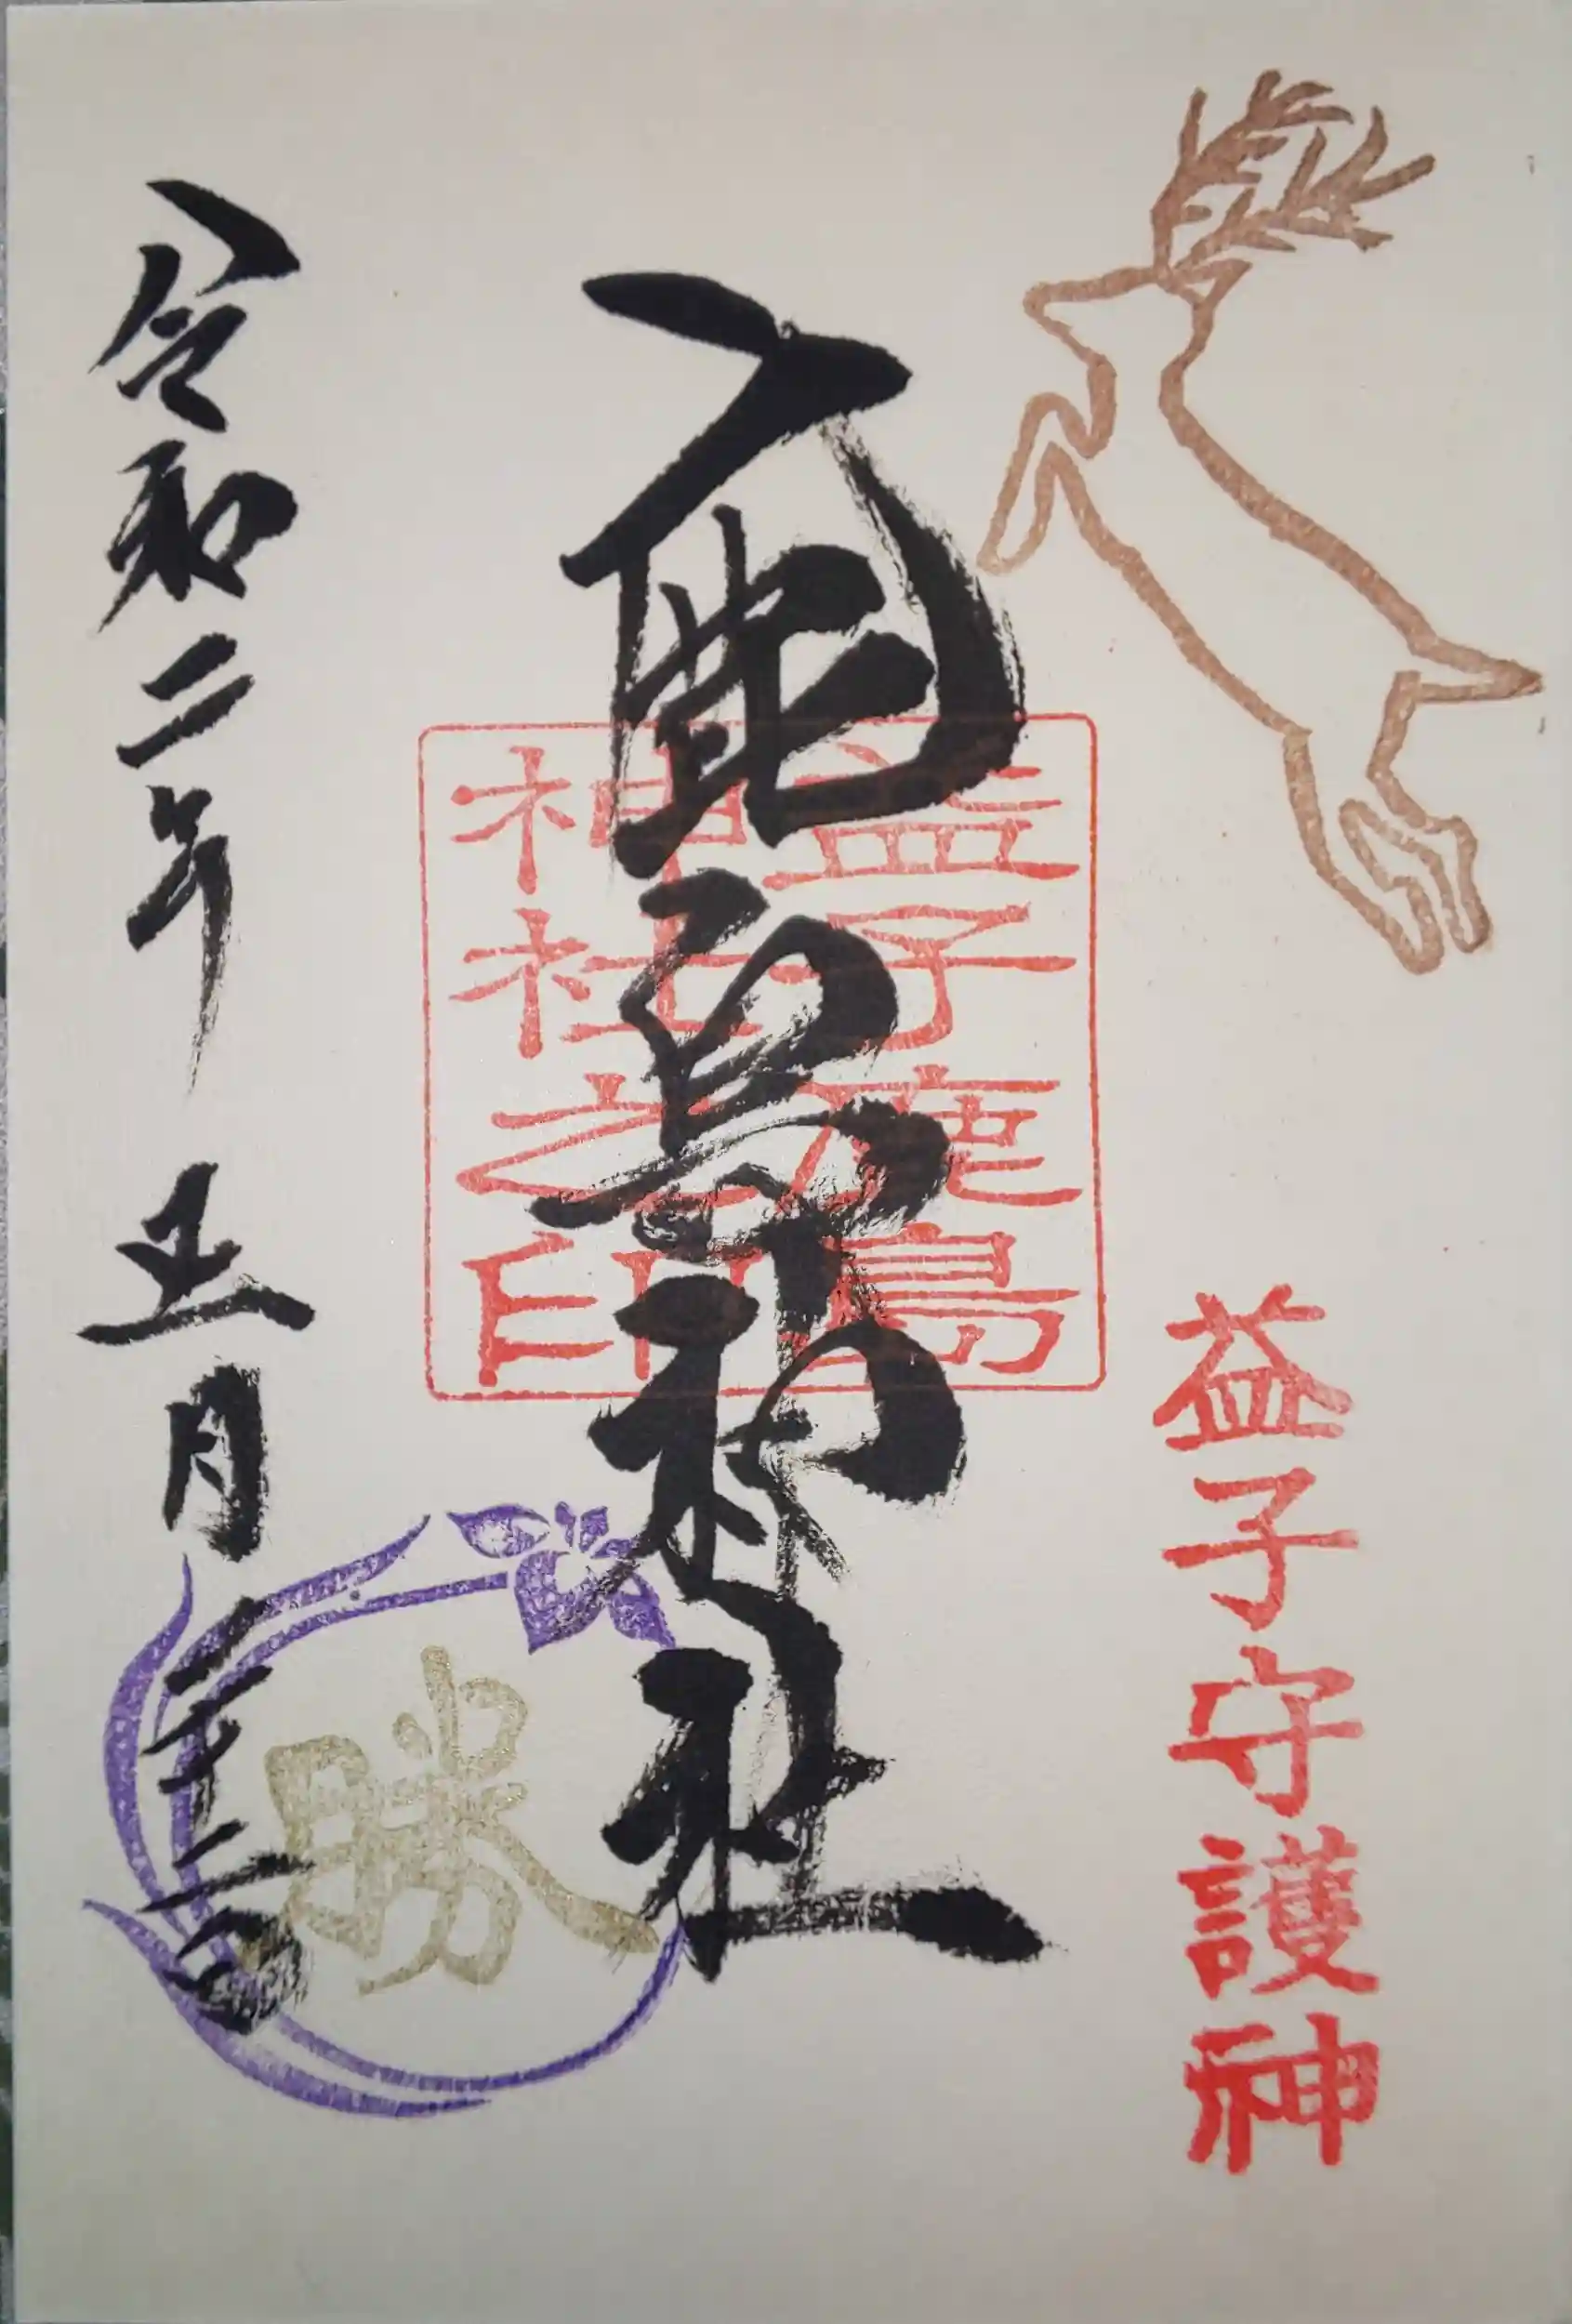 益子守護神
鹿島神社
益子鹿島
神社之印
令和二年 正月
勝